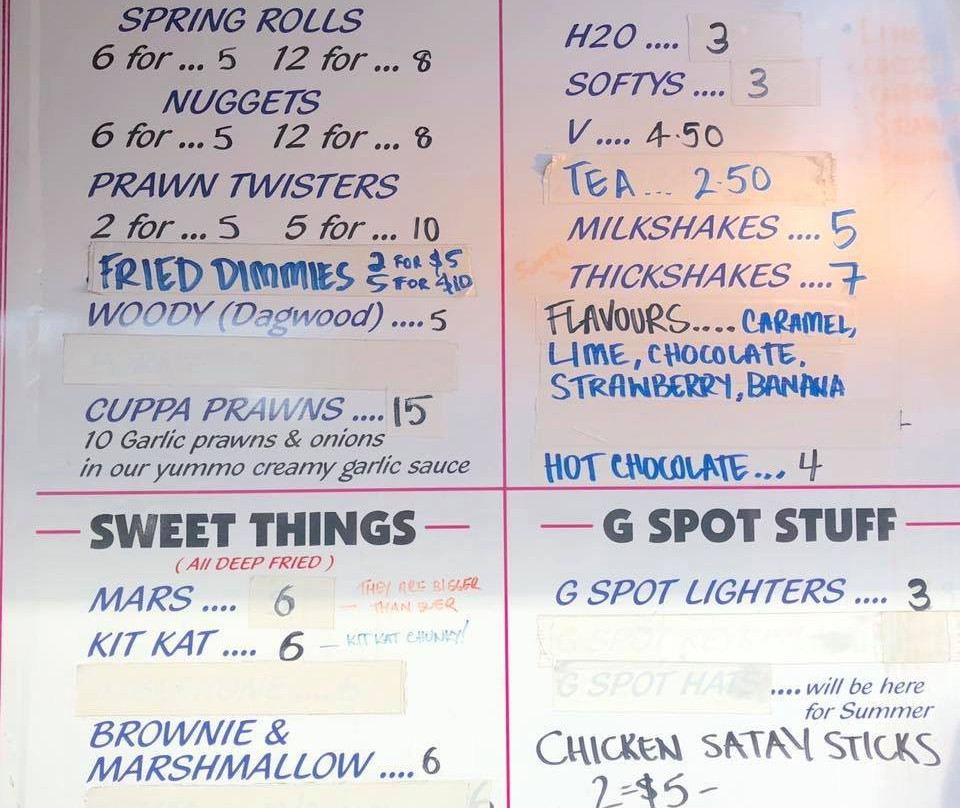 SPRING ROLLS
6 for ... 5 12 for ... 8
NUGGETS
6 for ... 5 12 for ... 8
PRAWN TWISTERS
2 for ... 5 5 for ... 10
FRIED DIMMIES 2 FOR $5
5 FOR $10
WOODY (Dagwood) .... 5
CUPPA PRAWNS .... 15
10 Garlic prawns & onions
in our yummo creamy garlic sauce
H2O .... 3
SOFTYS .... 3
V .... 4.50
TEA ... 2.50
MILKSHAKES .... 5
THICKSHAKES .... 7
FLAVOURS .... CARAMEL,
LIME, CHOCOLATE.
STRAWBERRY, BANANA
HOT CHOCOLATE... 4
SWEET THINGS
( All DEEP FRIED )
MARS .... 6 — THEY ARE BIGGER
THAN EVER
KIT KAT .... 6 — KIT KAT CHUNKY!
BROWNIE &
MARSHMALLOW .... 6
G SPOT STUFF
G SPOT LIGHTERS .... 3
G SPOT HATS .... will be here
for Summer
CHICKEN SATAY STICKS
2=$5 -